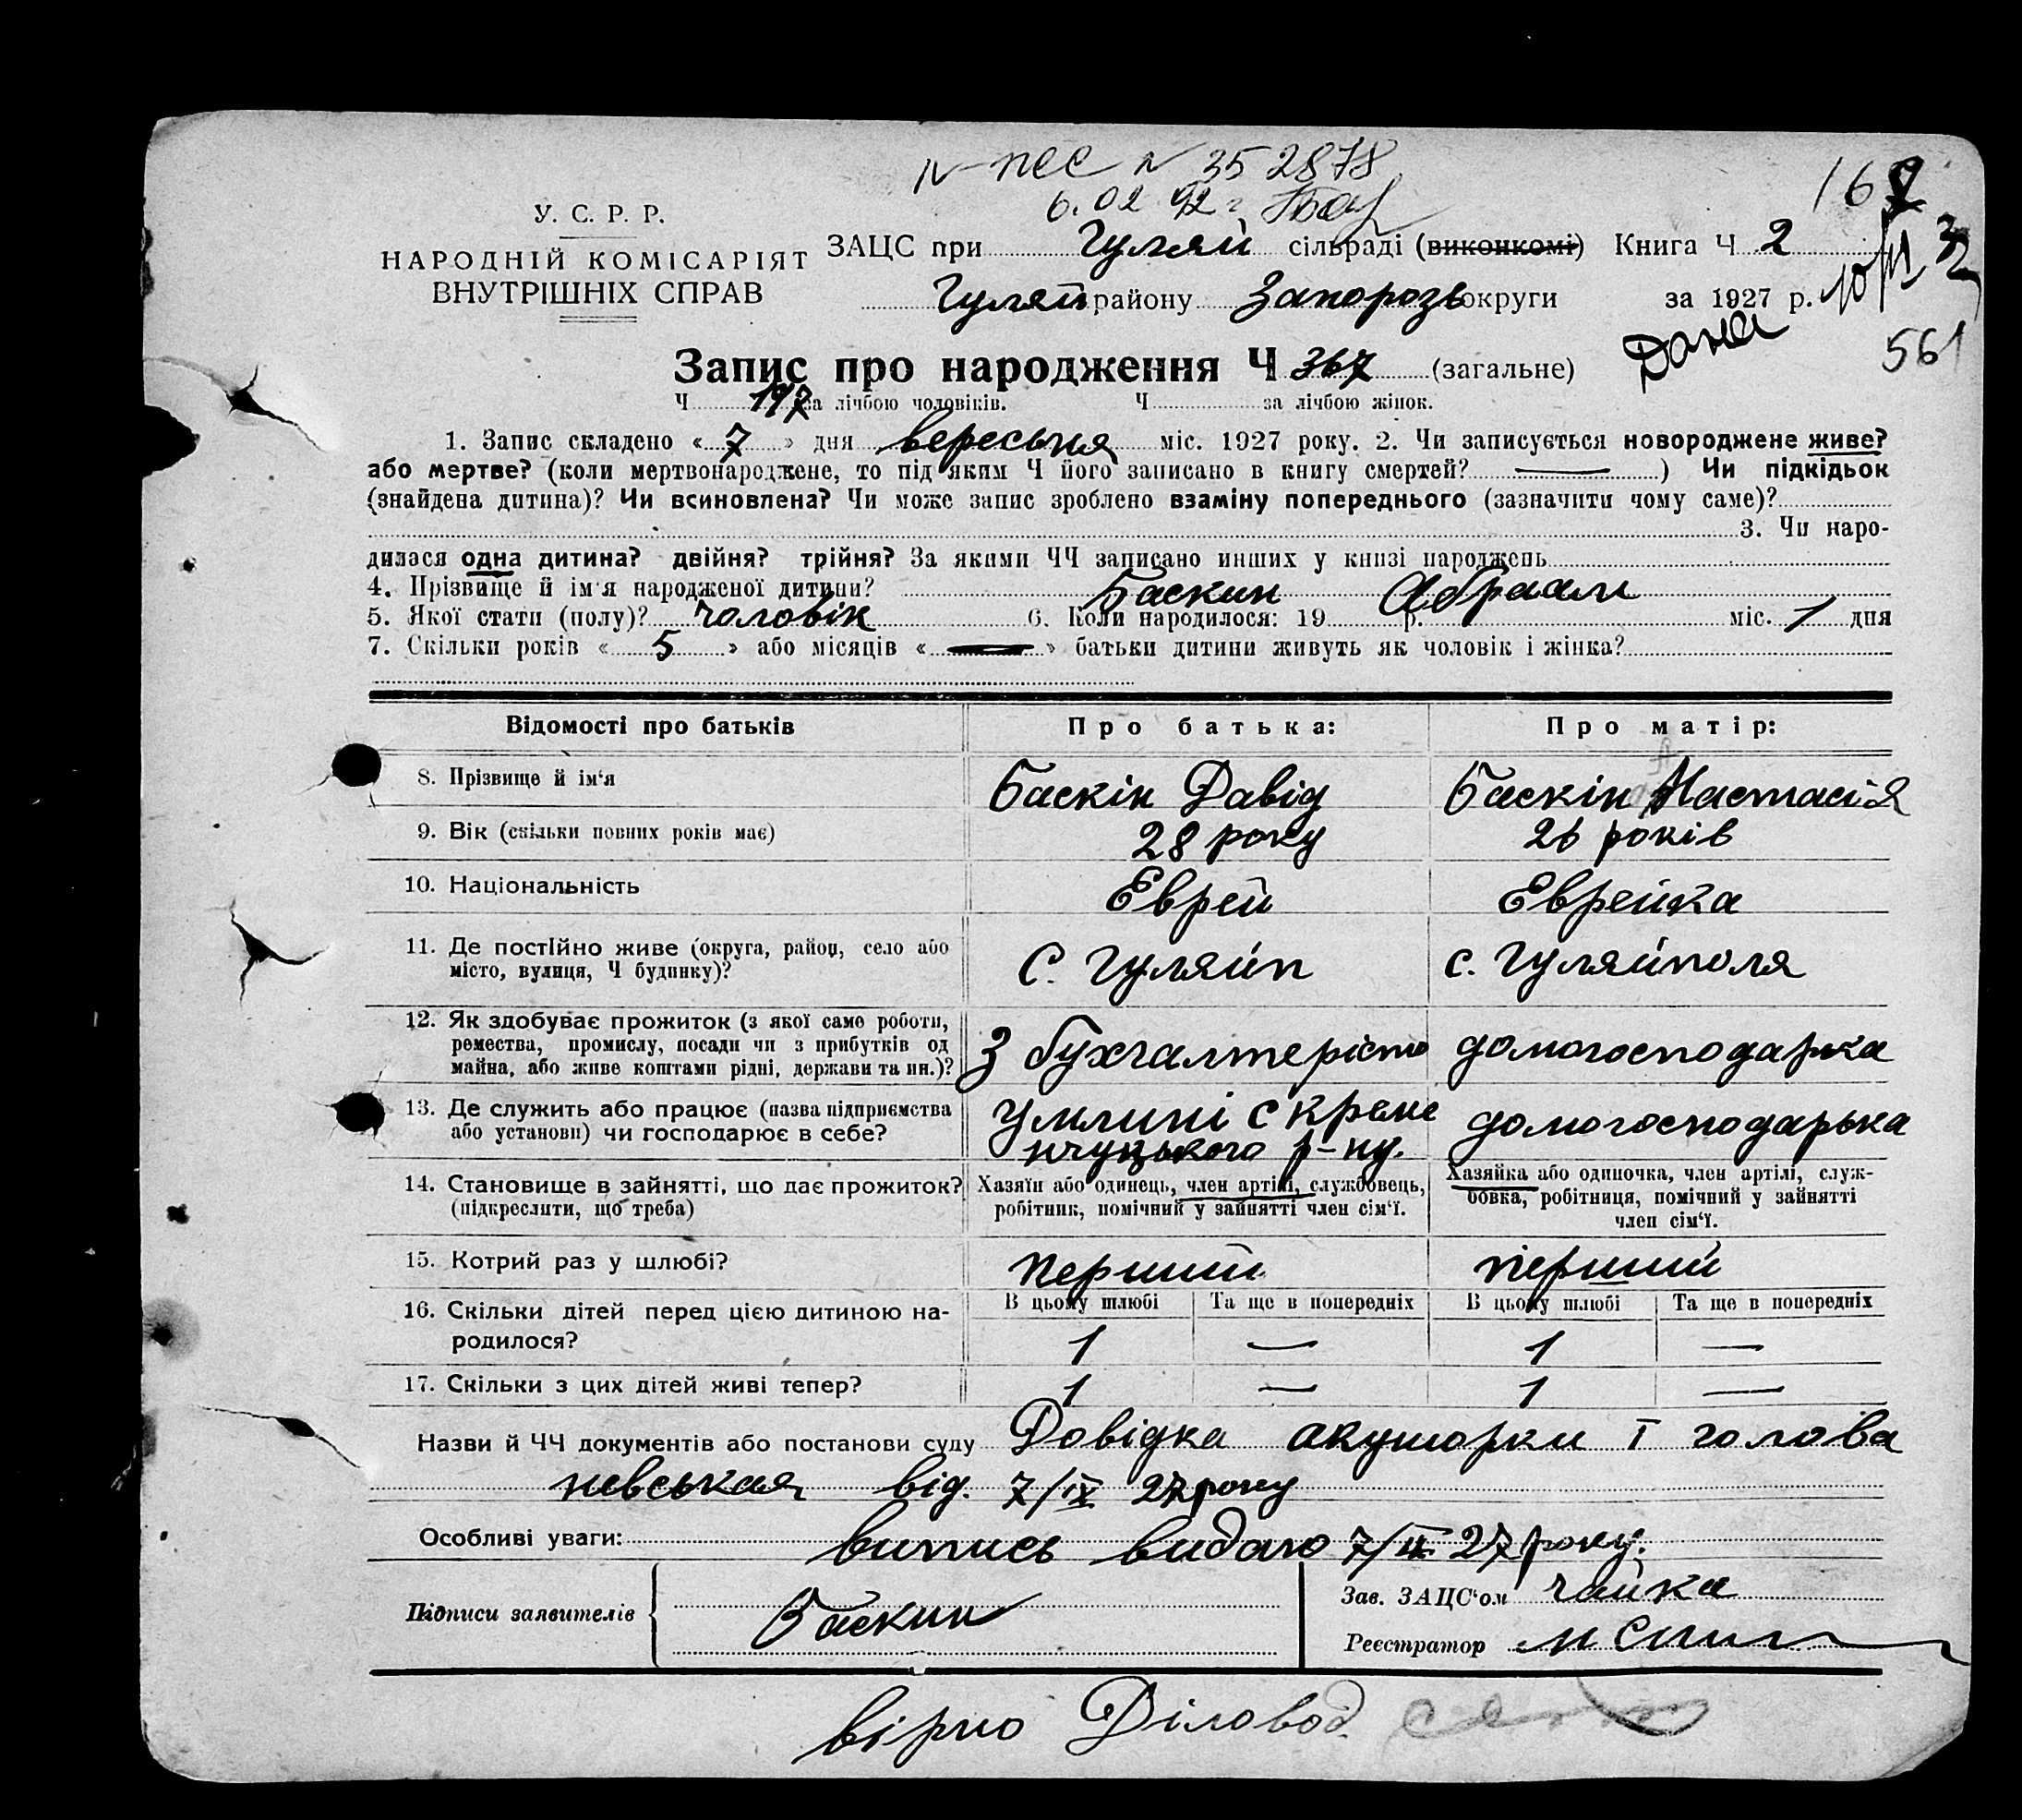 № 35 2878
6. 02 92 г
У. С. Р. Р.
НАРОДНІЙ КОМІСАРІЯТ
ВНУТРІШНІХ СПРАВ
ЗАЦС при Гуляй сільраді (виконкомі) Книга Ч 2
Гуляйп району Запорозь округи за 1927 р.
561
Запис про народження Ч 367 (загальне)
Ч 197 за лічбою чоловіків. Ч за лічбою жінок.
1. Запис складено «7» дня вересьня міс. 1927 року. 2. Чи записується новороджене живе?
або мертве? (коли мертвонароджене, то під яким Ч його записано в книгу смертей? —) Чи підкідьок
(знайдена дитина)? Чи всиновлена? Чи може запис зроблено взаміну попереднього (зазначити чому саме)?
3. Чи наро-
дилася одна дитина? двійня? трійня? За якими ЧЧ записано инших у книзі народжень
4. Прізвище й ім'я народженої дитини? Баскин Абраам
5. Якої стати (полу)? чоловік 6. Коли народилося: 19 р. міс. 1 дня
7. Скільки років «5» або місяців «—» батьки дитини живуть як чоловік і жінка?
Відомості про батьків Про батька: Про матір:
8. Прізвище й ім'я Баскін Давід Баскін Настасія
9. Вік (скільки повних років має) 28 року 26 років
10. Національність Еврей Еврейка
11. Де постійно живе (округа, район, село або
місто, вулиця, Ч будинку)? С. Гуляйп с. Гуляйполя
12. Як здобуває прожиток (з якої саме роботи,
ремества, промислу, посади чи з прибутків од
майна, або живе коштами рідні, держави та ин.)? З бухгалтерісто домогосподарка
13. Де служить або працює (назва підприємства
або установи) чи господарює в себе? У млині с Креме
нчуцького р-ну. домогосподарька
14. Становище в зайнятті, що дає прожиток?
(підкреслити, що треба)
Хазяїн або одинець, член артілі, службовець,
робітник, помічний у зайнятті член сім'ї.
Хазяйка або одиночка, член артілі, служ-
бовка, робітниця, помічний у зайнятті
член сім'ї.
15. Котрий раз у шлюбі? перший перший
16. Скільки дітей перед цією дитиною на-
родилося?
В цьому шлюбі Та ще в попередніх В цьому шлюбі Та ще в попередніх
1 — 1 —
17. Скільки з цих дітей живі тепер? 1 — 1 —
Назви й ЧЧ документів або постанови суду Довідка акушорки І голова
невськая від. 7/ІХ 27 року
Особливі уваги: випись видано 7/ІХ 27 року.
Підписи заявителів Баскин
Зав. ЗАЦС'ом чайка
Реєстратор
вірно Діловод.